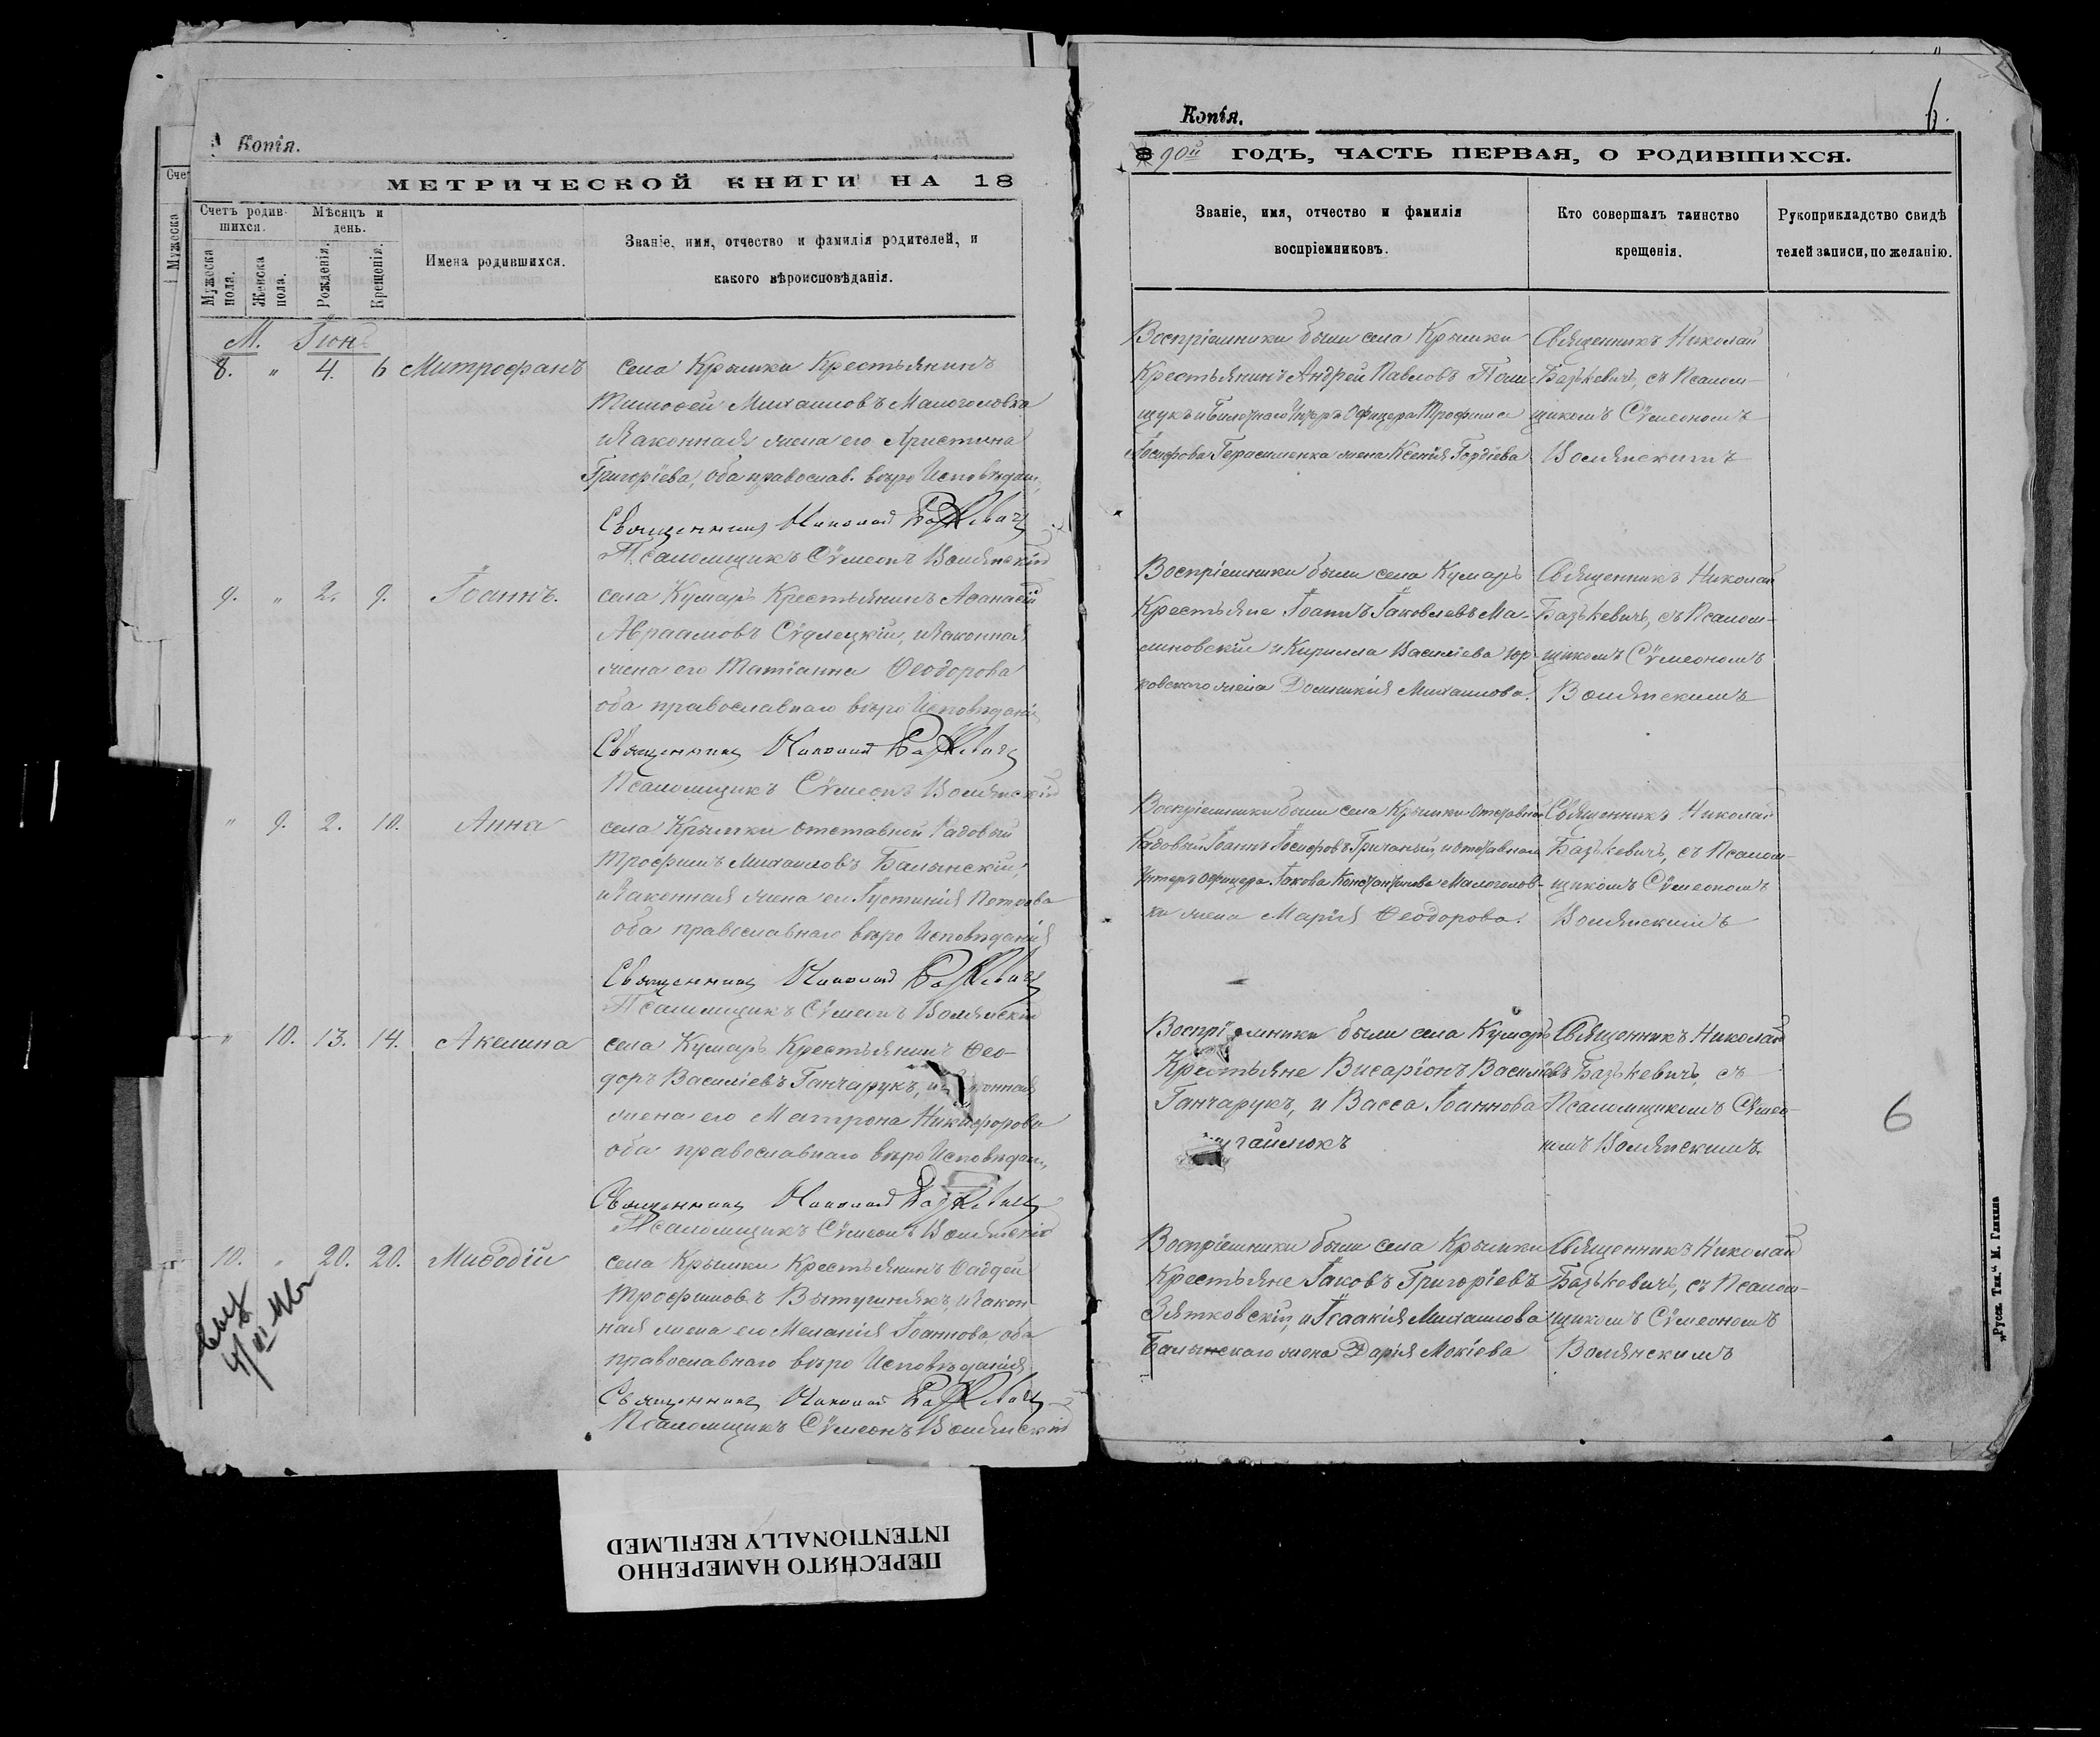 Копія.
МЕТРИЧЕСКОЙ КНИГИ НА 18
Счетъ родив-
шихся.
Мѣсяцъ и
день.
Мужеска
пола.
Женска
пола.
Рожденія.
Крещенія.
Имена родившихся.
Званіе, имя, отчество и фамилія родителей, и
какого вѣроисповѣданія.
М. Іюнь
8. " 4. 6 Митрофанъ
села Крымки Крестьянинъ
Тимоѳей Михаиловъ Малоголовка
и законная жена его Христина
Григоріева, оба православ. вѣро Исповѣдан.
Священникъ Николай Базькевичъ
Псаломщикъ Сѵмеонъ Волянскій
9. " 2. 9. Іоаннъ.
села Кумаръ Крестьянинъ Аѳанасій
Авраамовъ Сѣдлецкій, и законная
жена его Татіанна Ѳеодорова
оба православнаго вѣро Исповѣданія
Священникъ Николай Базькевичъ
Псаломщикъ Сѵмеонъ Волянскій
" 9. 2. 10. Анна
села Крымки отставной Рядовый
Трофимъ Михаиловъ Балынскій,
и законная жена его Іустинія Петрова
оба православнаго вѣро Исповѣданія
Священникъ Николай Базькевичъ
Псаломщикъ Сѵмеонъ Волянскій
" 10. 13. 14. Акелина
села Кумаръ Крестьянинъ Ѳео-
доръ Василіевъ Ганчарукъ, и законная
жена его Матрона Никифорова
оба православнаго вѣро Исповѣдан.,
Священникъ Николай Базькевичъ
Псаломщикъ Сѵмеонъ Волянскій
10. " 20. 20. Миѳодій
села Крымки Крестьянинъ Ѳаддей
Трофимовъ Вытугинякъ, и закон-
ная жена его Меланія Іоаннова, оба
православнаго вѣро Исповѣданія
Священникъ Николай Базькевичъ
Псаломщикъ Сѵмеонъ Волянскій
Копія.
6.
90й ГОДЪ, ЧАСТЬ ПЕРВАЯ, О РОДИВШИХСЯ.
Званіе, имя, отчество и фамилія
воспріемниковъ.
Кто совершалъ таинство
крещенія.
Рукоприкладство свидѣ
телей записи, по желанію.
Воспріемники были села Крымки
Крестьянинъ Андрей Павловъ Поли-
щукъ и Билетнаго Унтеръ Офицера Трофима
Іосифова Герасименка жена Ксенія Гордіева
Священникъ Николай
Базькевичъ, съ Псалом-
щикомъ Сѵмеономъ
Волянскимъ
Воспріемники были села Кумаръ
Крестьяне Іоаннъ Іаковлевъ Ма-
линовскій и Кирилла Василіева Юр-
ковского жена Домникія Михаилова.
Священникъ Николай
Базькевичъ, съ Псалом-
щикомъ Сѵмеономъ
Волянскимъ
Воспріемники были села Крымки Отставной
Рядовый Іоаннъ Іосифовъ Гричаный, и отставнаго
Унтеръ Офицера Іакова Константинова Малоголов-
ки жена Марія Ѳеодорова.
Священникъ Николай
Базькевичъ, съ Псалом-
щикомъ Сѵмеономъ
Волянскимъ
Воспріемники были села Кумаръ
Крестьяне Висаріонъ Василіевъ
Ганчарукъ, и Васса Іоаннова
гайлюкъ
Священникъ Николай
Базькевичъ, съ
Псаломщикомъ Сѵмео-
номъ Волянскимъ.
6
Воспріемники были села Крымки
Крестьяне Іаковъ Григоріевъ
Зятковскій, и Ісаакія Михаилова
Балынскаго жена Дарія Мокіева
Священникъ Николай
Базькевичъ, съ Псалом-
щикомъ Сѵмеономъ
Волянскимъ
„Русск. Тип.“ М. Гликла
ПЕРЕСНЯТО НАМЕРЕННО
INTENTIONALLY REFILMED